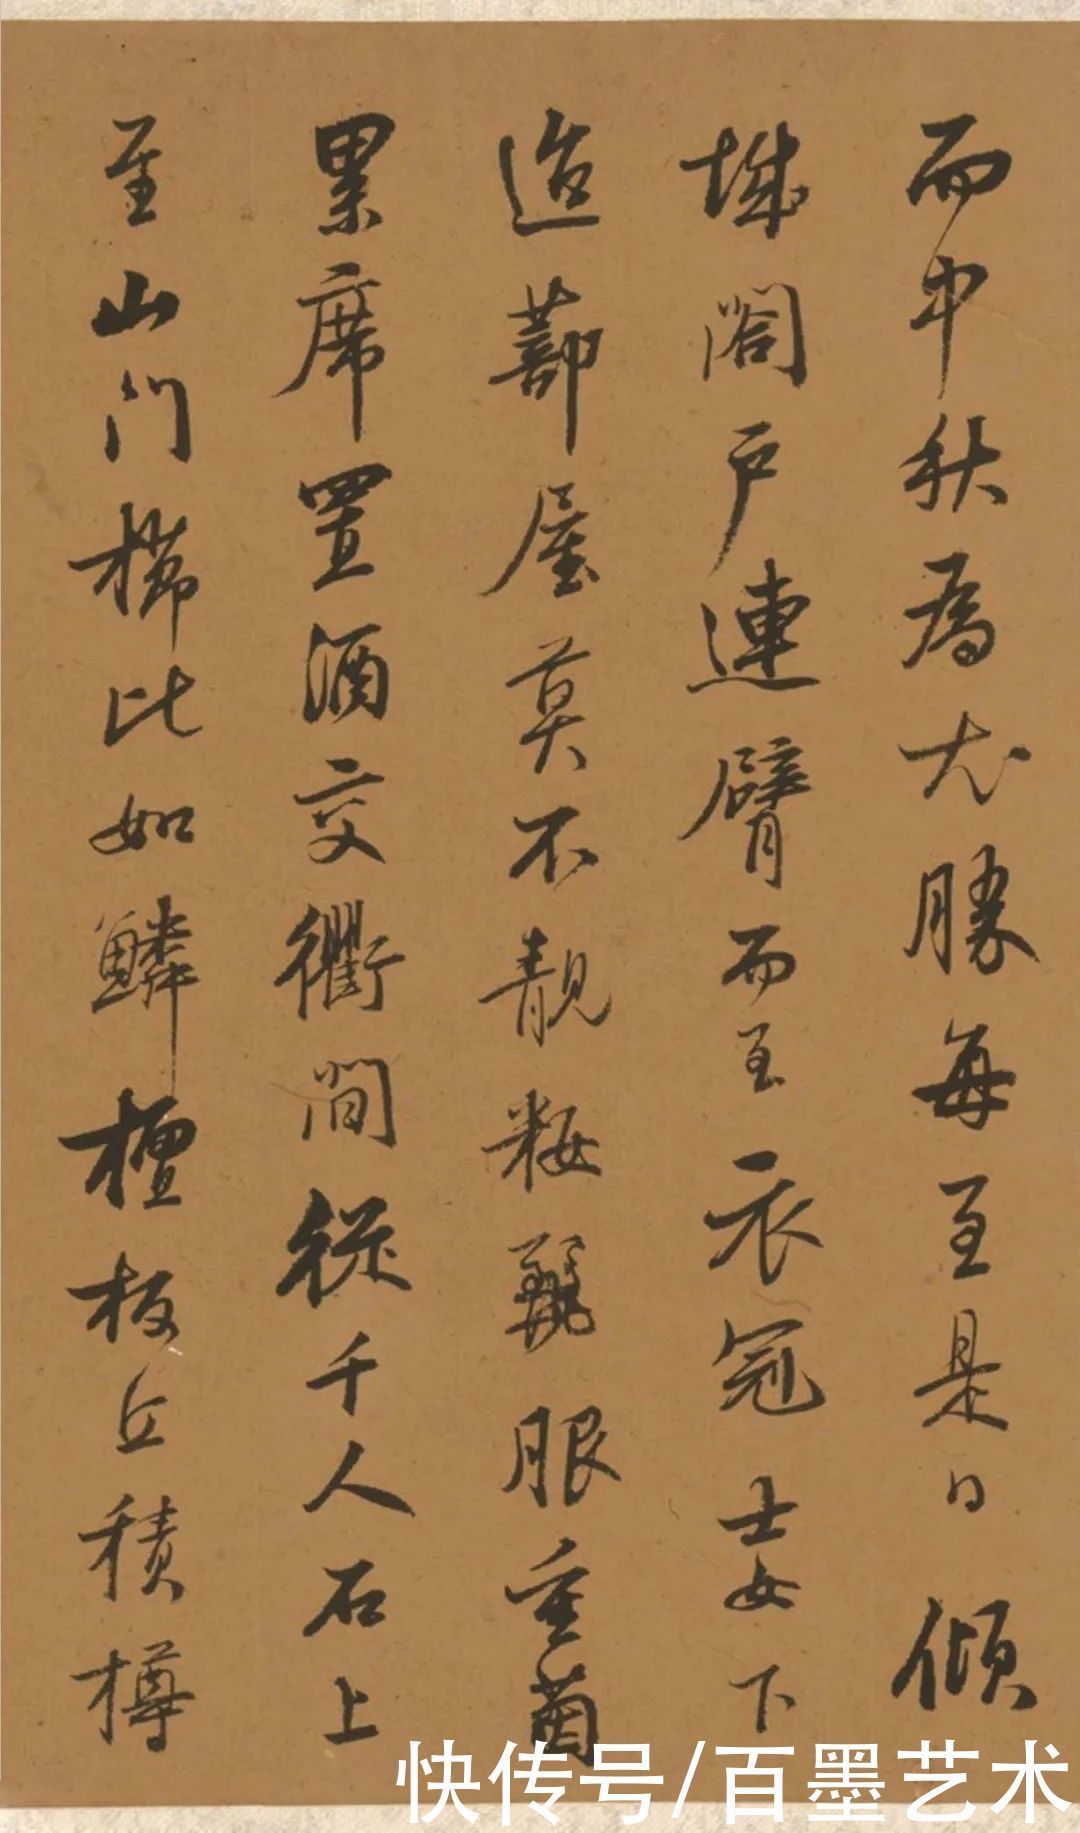 而中秋為尤勝每至是日傾
城闔戶連臂而至衣冠士女下
迨蔀屋莫不靚粧麗服重茵
累席置酒交衢間從千人石上
至山門櫛比如鱗檀板丘積樽
快传号/百墨艺术